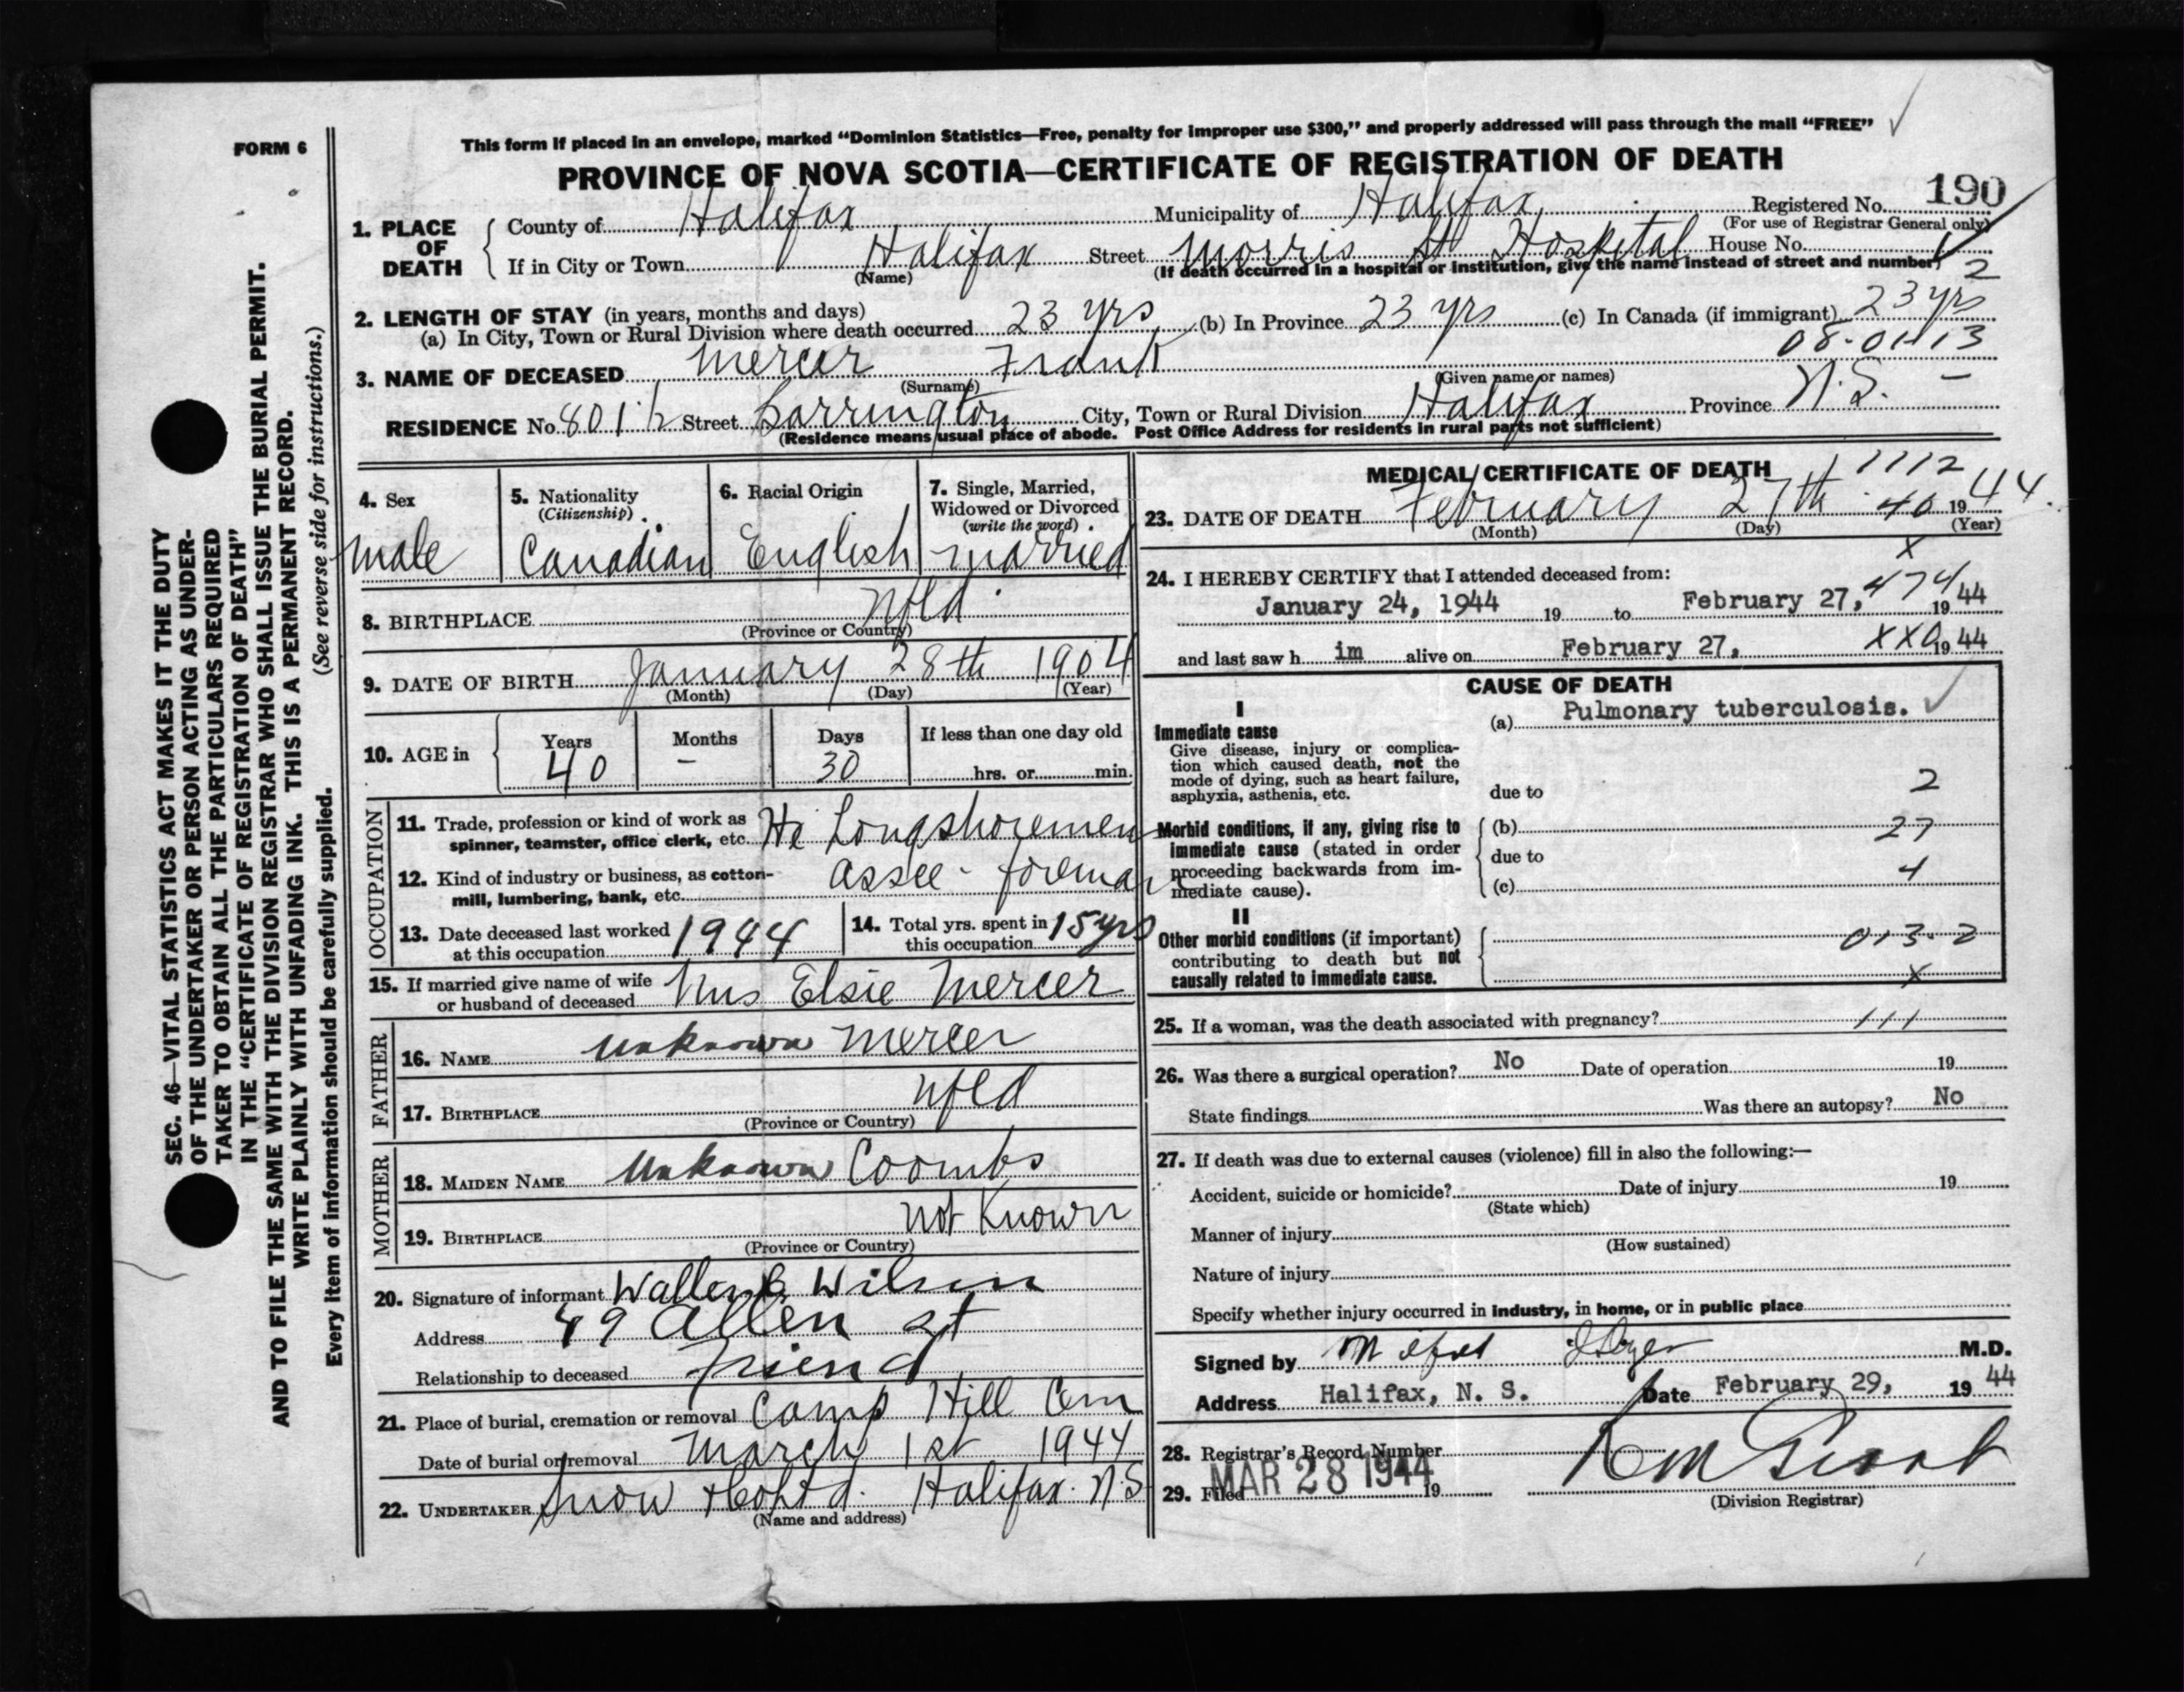 FORM 6
This form if placed in an envelope, marked “Dominion Statistics—Free, penalty for improper use $300,” and properly addressed will pass through the mail “FREE”
PROVINCE OF NOVA SCOTIA—CERTIFICATE OF REGISTRATION OF DEATH
190
1. PLACE OF DEATH
County of Halifax Municipality of Halifax Registered No.
(For use of Registrar General only)
If in City or Town Halifax Street Morris St Hospital House No.
(Name) (If death occurred in a hospital or institution, give the name instead of street and number)
2
2. LENGTH OF STAY (in years, months and days)
(a) In City, Town or Rural Division where death occurred 23 yrs (b) In Province 23 yrs (c) In Canada (if immigrant) 23 yrs
08-01-13
3. NAME OF DECEASED Mercer Frank
(Surname) (Given name or names)
RESIDENCE No. 801½ Street Barrington City, Town or Rural Division Halifax Province N.S. —
(Residence means usual place of abode. Post Office Address for residents in rural parts not sufficient)
4. Sex
male
5. Nationality
(Citizenship)
Canadian
6. Racial Origin
English
7. Single, Married,
Widowed or Divorced
(write the word)
married
8. BIRTHPLACE Nfld
(Province or Country)
9. DATE OF BIRTH January 28th 1904
(Month) (Day) (Year)
10. AGE in
Years Months Days If less than one day old
40 – 30 hrs. or min.
OCCUPATION
11. Trade, profession or kind of work as
spinner, teamster, office clerk, etc. Longshoremen
12. Kind of industry or business, as cotton-
mill, lumbering, bank, etc. foreman
13. Date deceased last worked
at this occupation 1944
14. Total yrs. spent in
this occupation 15 yrs
15. If married give name of wife
or husband of deceased Mrs Elsie Mercer
FATHER
16. NAME unknown Mercer
17. BIRTHPLACE Nfld
(Province or Country)
MOTHER
18. MAIDEN NAME Unknown Coombs
19. BIRTHPLACE not Known
(Province or Country)
20. Signature of informant Wilson
Address 49 Allen st
Relationship to deceased friend
21. Place of burial, cremation or removal Camp Hill Cem
Date of burial or removal March 1st 1944
22. UNDERTAKER Snow & Co Ltd. Halifax. N.S
(Name and address)
MEDICAL CERTIFICATE OF DEATH
1112
23. DATE OF DEATH February 27th 40 1944.
(Month) (Day) (Year)
x
24. I HEREBY CERTIFY that I attended deceased from:
474
January 24, 1944 19 to February 27, 1944
and last saw h im alive on February 27, 1944
CAUSE OF DEATH
I
Immediate cause
Give disease, injury or complica-
tion which caused death, not the
mode of dying, such as heart failure,
asphyxia, asthenia, etc.
(a) Pulmonary tuberculosis.
due to 2
Morbid conditions, if any, giving rise to
immediate cause (stated in order
proceeding backwards from im-
mediate cause).
(b) 27
due to
(c) 4
II
Other morbid conditions (if important)
contributing to death but not
causally related to immediate cause.
013.2
x
25. If a woman, was the death associated with pregnancy? 111
26. Was there a surgical operation? No Date of operation 19
State findings Was there an autopsy? No
27. If death was due to external causes (violence) fill in also the following:—
Accident, suicide or homicide? Date of injury 19
(State which)
Manner of injury
(How sustained)
Nature of injury
Specify whether injury occurred in industry, in home, or in public place
Signed by M.D.
Address Halifax, N. S. Date February 29, 1944
28. Registrar's Record Number
29. Filed MAR 28 1944 19
(Division Registrar)
SEC. 46—VITAL STATISTICS ACT MAKES IT THE DUTY
OF THE UNDERTAKER OR PERSON ACTING AS UNDER-
TAKER TO OBTAIN ALL THE PARTICULARS REQUIRED
IN THE “CERTIFICATE OF REGISTRATION OF DEATH”
AND TO FILE THE SAME WITH THE DIVISION REGISTRAR WHO SHALL ISSUE THE BURIAL PERMIT.
WRITE PLAINLY WITH UNFADING INK. THIS IS A PERMANENT RECORD.
(See reverse side for instructions.)
Every item of information should be carefully supplied.